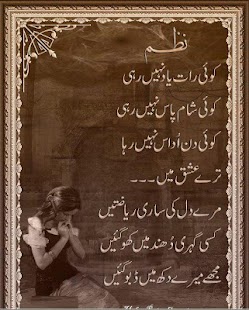 نظم
کوئی رات یاد نہیں رہی
کوئی شام پاس نہیں رہی
کوئی دن اُداس نہیں رہا
ترے عشق میں۔۔۔
مرے دل کی ساری ریاضتیں
کسی گہری دُھند میں کھو گئیں
مجھے میرے دکھ میں ڈبو گئیں